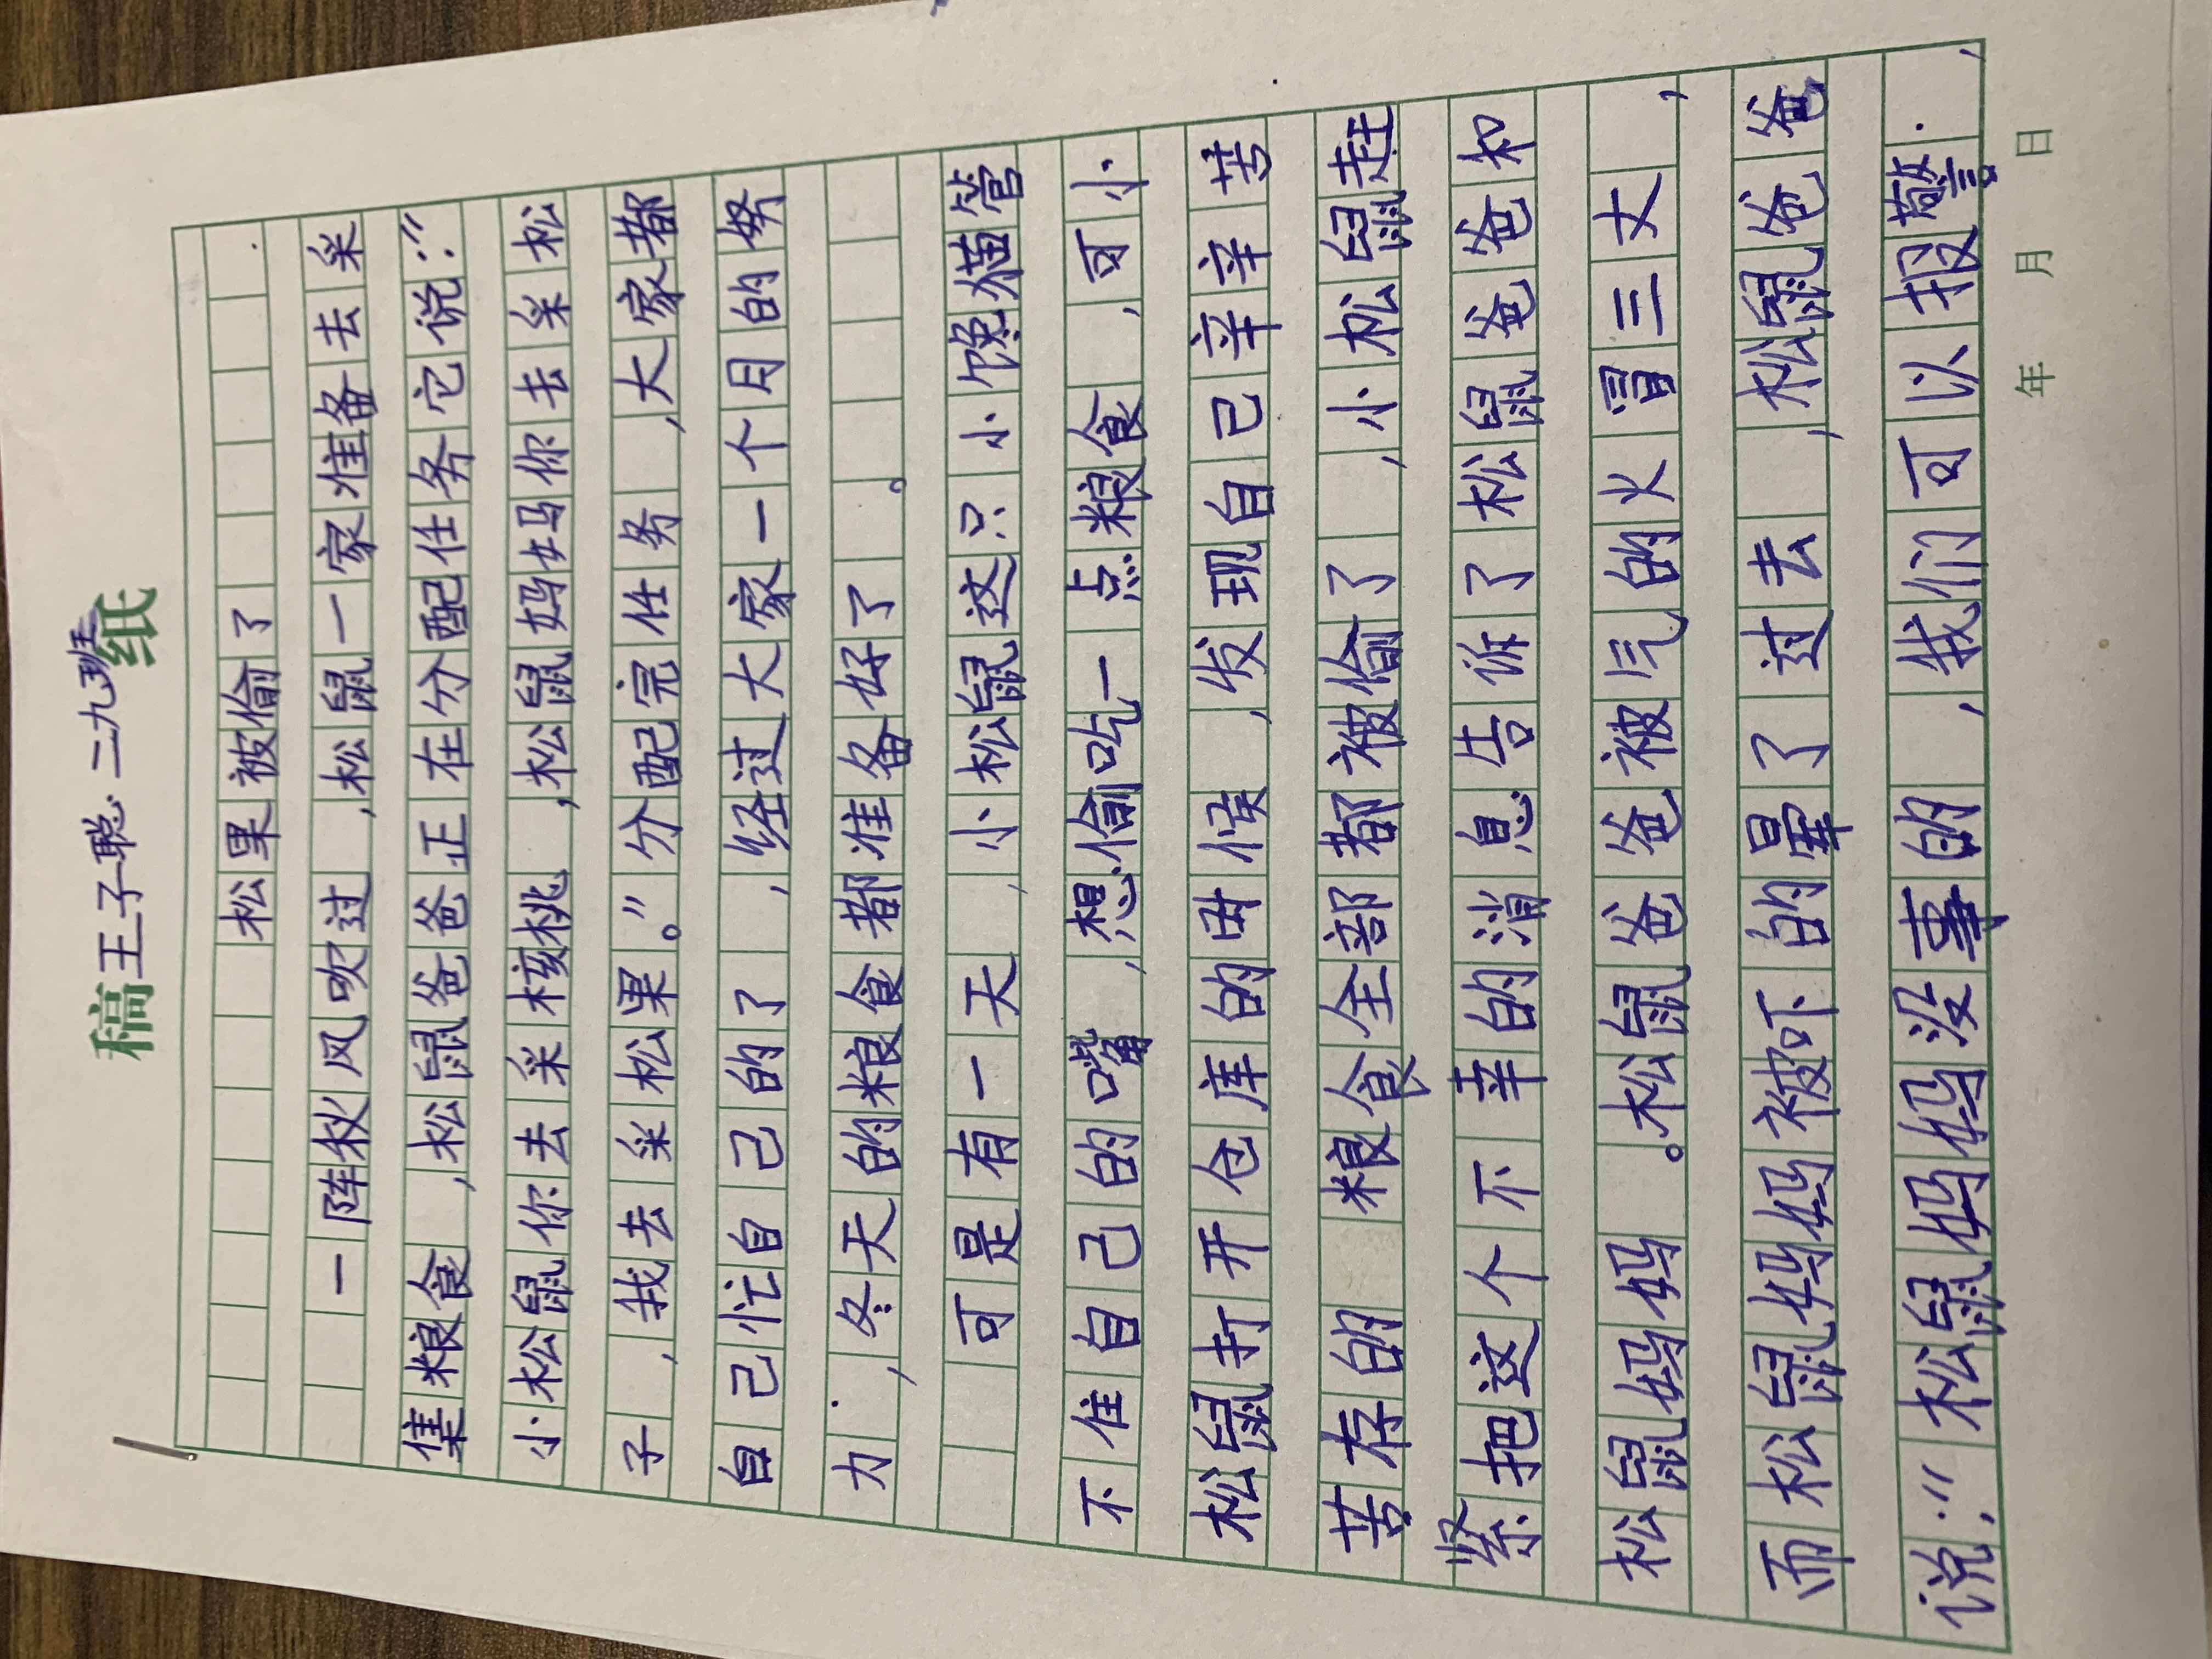 稿 王子聪. 二九班 纸
松果被偷了
一阵秋风吹过，松鼠一家准备去采
集粮食，松鼠爸爸正在分配任务它说：“
小松鼠你去采核桃，松鼠妈妈你去采松
子，我去采松果。”分配完任务，大家都
自己忙自己的了，经过大家一个月的努
力，冬天的粮食都准备好了。
可是有一天，小松鼠这只小馋猫管
不住自己的嘴，想偷吃一点粮食，可小
松鼠打开仓库的时候，发现自己辛辛苦
苦存的粮食全部都被偷了，小松鼠赶
紧把这个不幸的消息告诉了松鼠爸爸和
松鼠妈妈。松鼠爸爸被气的火冒三丈，
而松鼠妈妈被吓的晕了过去，松鼠爸爸
说：“松鼠妈妈没事的，我们可以报警，
年 月 日